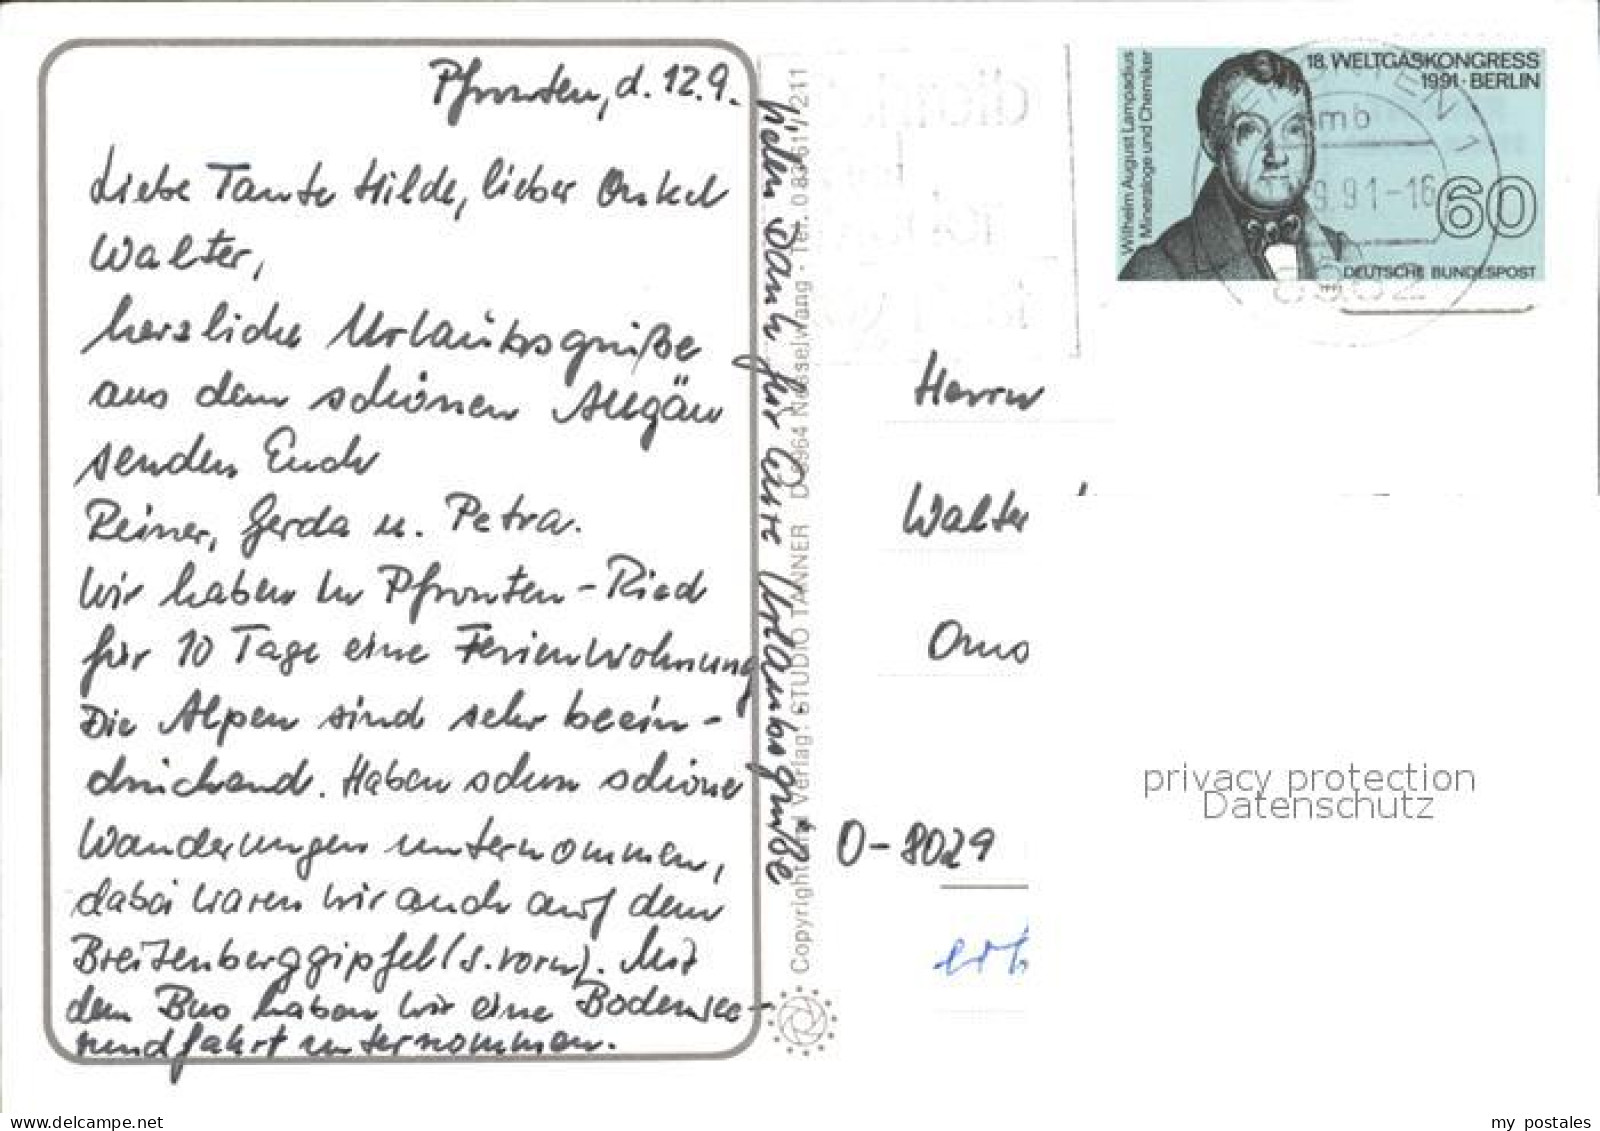 Pfronten, d. 12.9.
Liebe Tante Hilde, lieber Onkel
Walter,
herzliche Urlaubsgrüße
aus dem schönen Allgäu
senden Euch
Reiner, Gerda u. Petra.
Wir haben in Pfronten-Ried
für 10 Tage eine Ferienwohnung
Die Alpen sind sehr beein-
druckend. Haben schon schöne
Wanderungen unternommen,
dabei waren wir auch auf dem
Breitenberggipfel (s. vorn). Mit
dem Bus haben wir eine Bodensee-
rundfahrt unternommen.
Vielen Dank für Eure Urlaubsgrüße
Copyright und Verlag: STUDIO TANNER D-8964 Nesselwang · Tel. 0 83 61 / 211
Wilhelm August Lampadius
Mineraloge und Chemiker
18. WELTGASKONGRESS
1991 · BERLIN
60
DEUTSCHE BUNDESPOST
9.91-16
Herrn
Walter
O-8029
privacy protection
Datenschutz
www.delcampe.net
my_postales